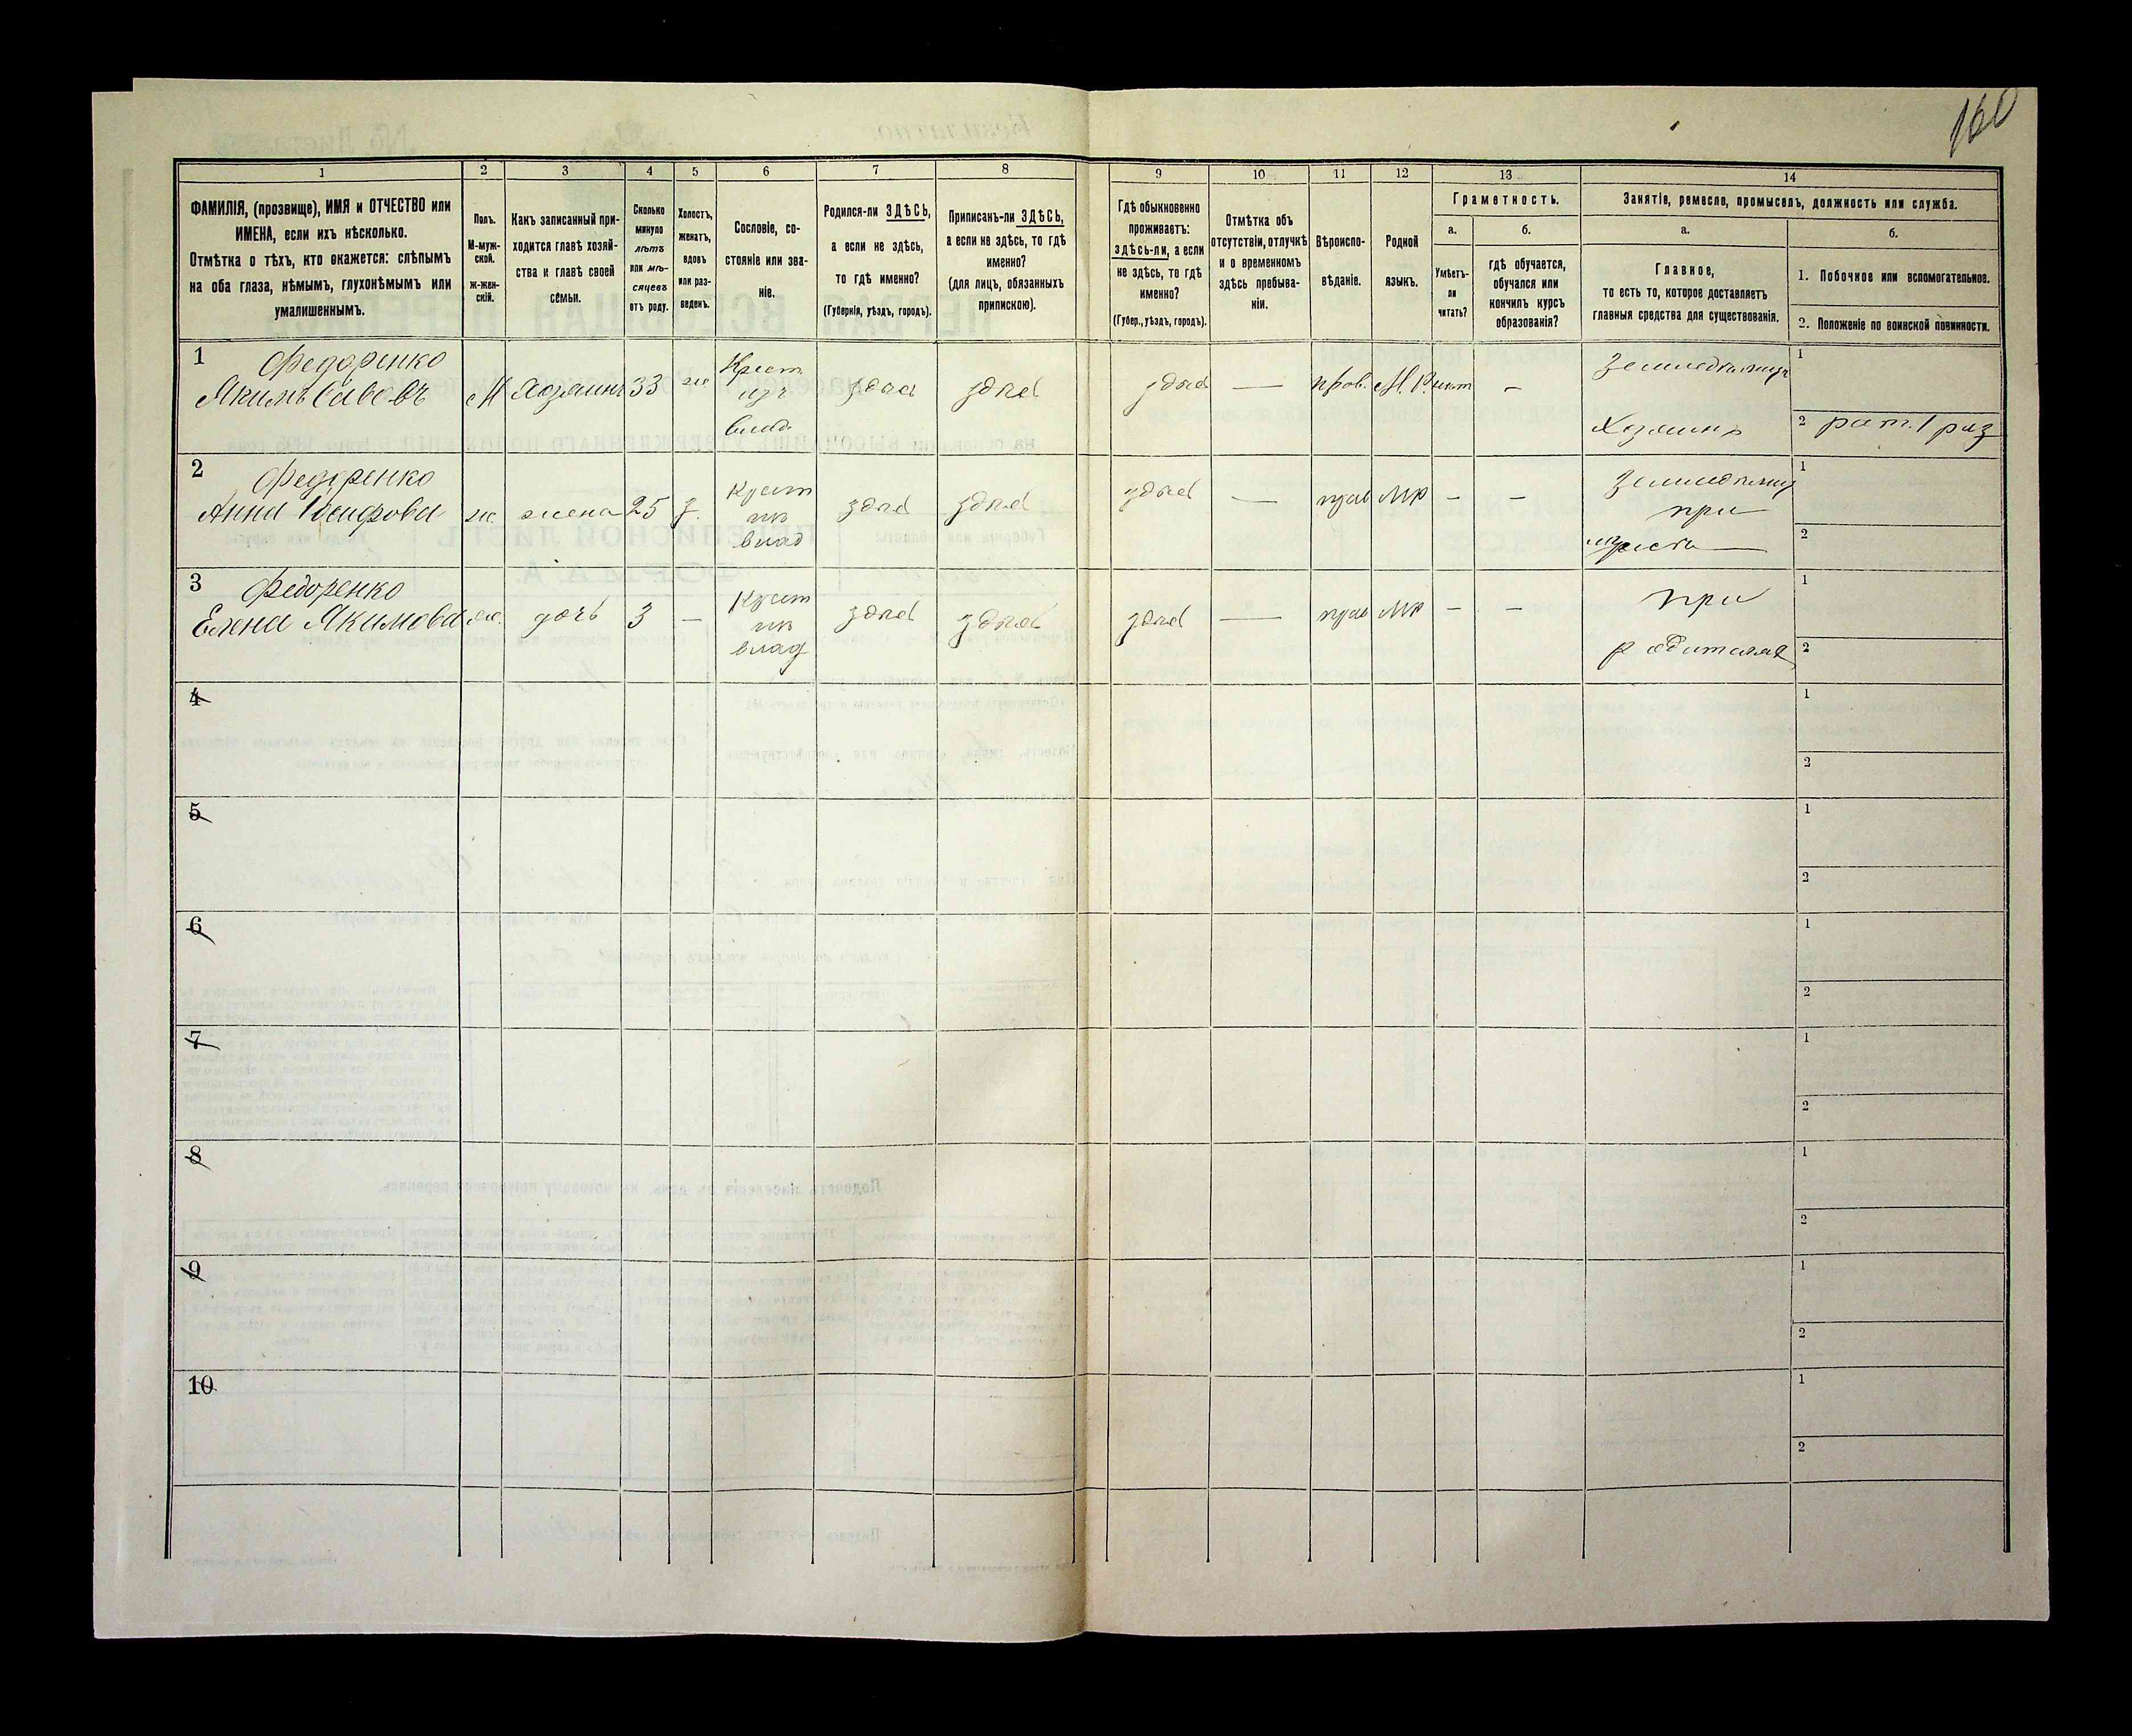 160
1
2
3
4
5
6
7
8
9
10
11
12
13
14
ФАМИЛІЯ, (прозвище), ИМЯ и ОТЧЕСТВО или
ИМЕНА, если ихъ нѣсколько.
Отмѣтка о тѣхъ, кто окажется: слѣпымъ
на оба глаза, нѣмымъ, глухонѣмымъ или
умалишеннымъ.
Полъ.
М-муж-
ской.
Ж-жен-
скій.
Какъ записанный при-
ходится главѣ хозяй-
ства и главѣ своей
семьи.
Сколько
минуло
лѣтъ
или мѣ-
сяцевъ
отъ роду.
Холостъ,
женатъ,
вдовъ
или раз-
веденъ.
Сословіе, со-
стояніе или зва-
ніе.
Родился-ли ЗДѢСЬ,
а если не здѣсь,
то гдѣ именно?
(Губернія, уѣздъ, городъ).
Приписанъ-ли ЗДѢСЬ,
а если не здѣсь, то гдѣ
именно?
(для лицъ, обязанныхъ
припискою).
Гдѣ обыкновенно
проживаетъ:
здѣсь-ли, а если
не здѣсь, то гдѣ
именно?
(Губер., уѣздъ, городъ).
Отмѣтка объ
отсутствіи, отлучкѣ
и о временномъ
здѣсь пребыва-
ніи.
Вѣроиспо-
вѣданіе.
Родной
языкъ.
Грамотность.
а.
Умѣетъ-
ли
читать?
б.
гдѣ обучается,
обучался или
кончилъ курсъ
образованія?
Занятіе, ремесло, промыселъ, должность или служба.
а.
Главное,
то есть то, которое доставляетъ
главныя средства для существованія.
б.
1. Побочное или вспомогательное.
2. Положеніе по воинской повинности.
1 Федоренко
Якимъ Савовъ М Хозяинъ 33 ж Крест. изъ влад. здѣсь здѣсь здѣсь — прав. М.Р. нѣт –
Земледѣлецъ
Хозяинъ
1
2 рат. 1 раз
2 Федоренко
Анна ж. жена 25 з. Крест из влад здѣсь здѣсь здѣсь — прав МР – –
при
1
2
3 Федоренко
Елена Якимова ж. дочь 3 – Крест из влад здѣсь здѣсь здѣсь — прав МР – –
при
родителях
1
2
4
1
2
5
1
2
6
1
2
7
1
2
8
1
2
9
1
2
10
1
2